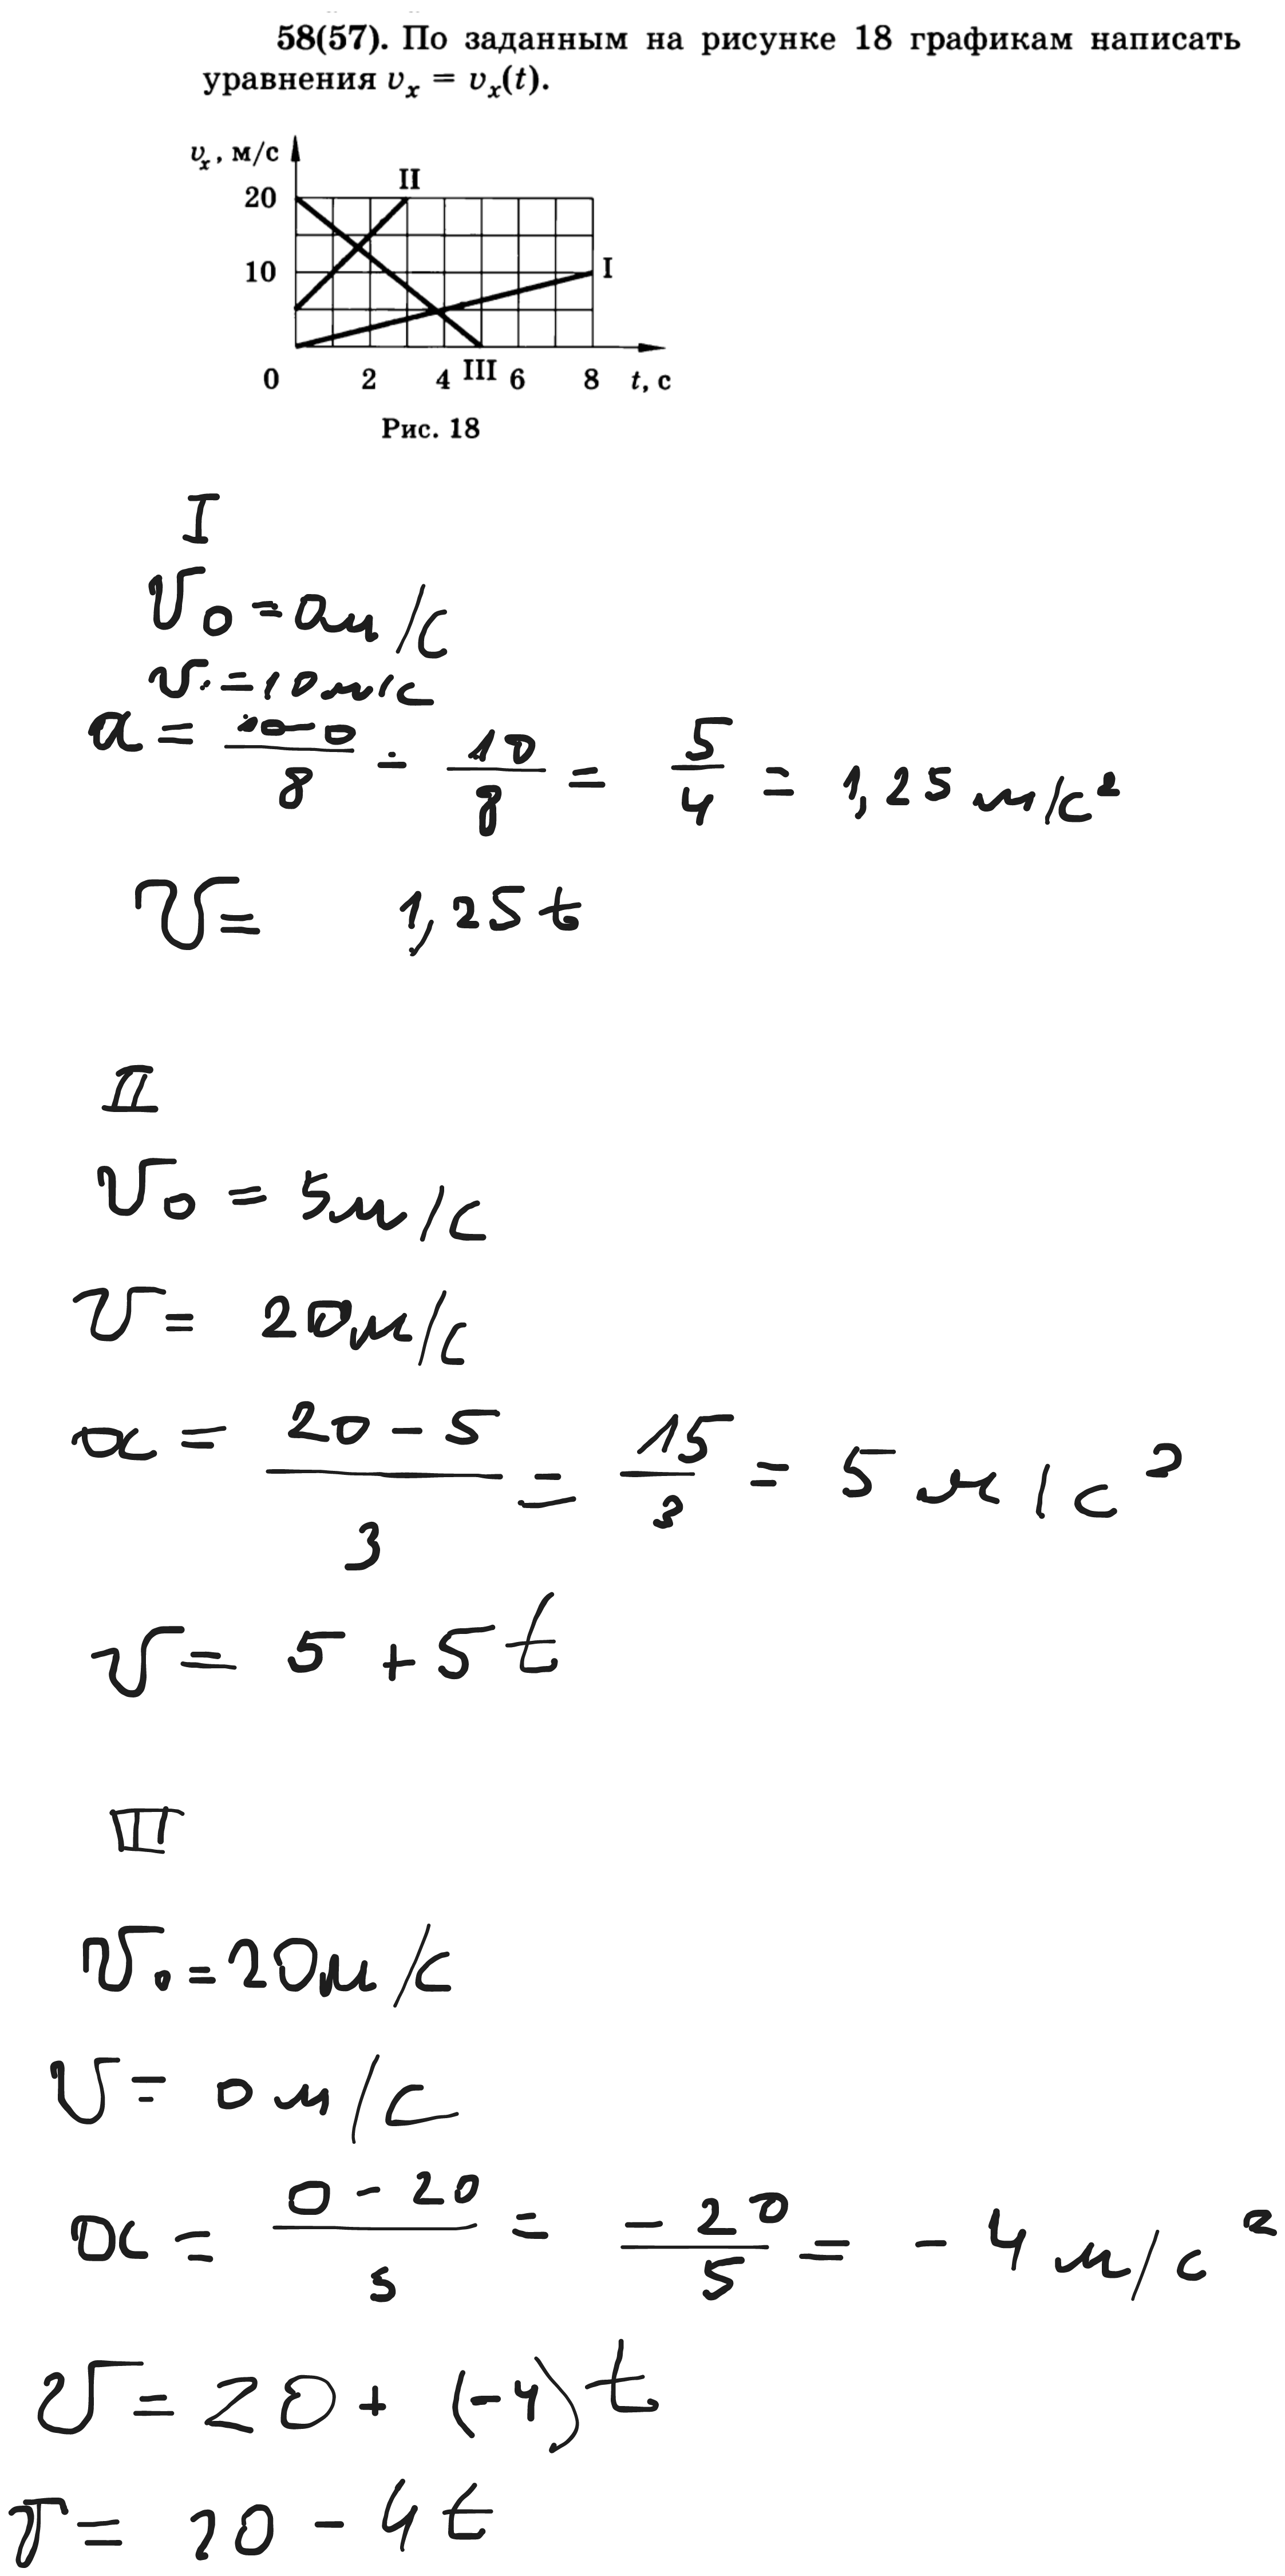 58(57). По заданным на рисунке 18 графикам написать
уравнения vₓ = vₓ(t).
vₓ, м/с
II
20
10
I
0 2 4 III 6 8 t, с
Рис. 18
I
v₀ = 0м/с
v = 10м/с
a = 10-0/8 = 10/8 = 5/4 = 1,25 м/с²
v = 1,25t
II
v₀ = 5м/с
v = 20м/с
a = 20 - 5/3 = 15/3 = 5 м/с²
v = 5 + 5t
III
v₀ = 20м/с
v = 0 м/с
a = 0 - 20/5 = -20/5 = - 4 м/с²
v = 20 + (-4)t
v = 20 - 4t